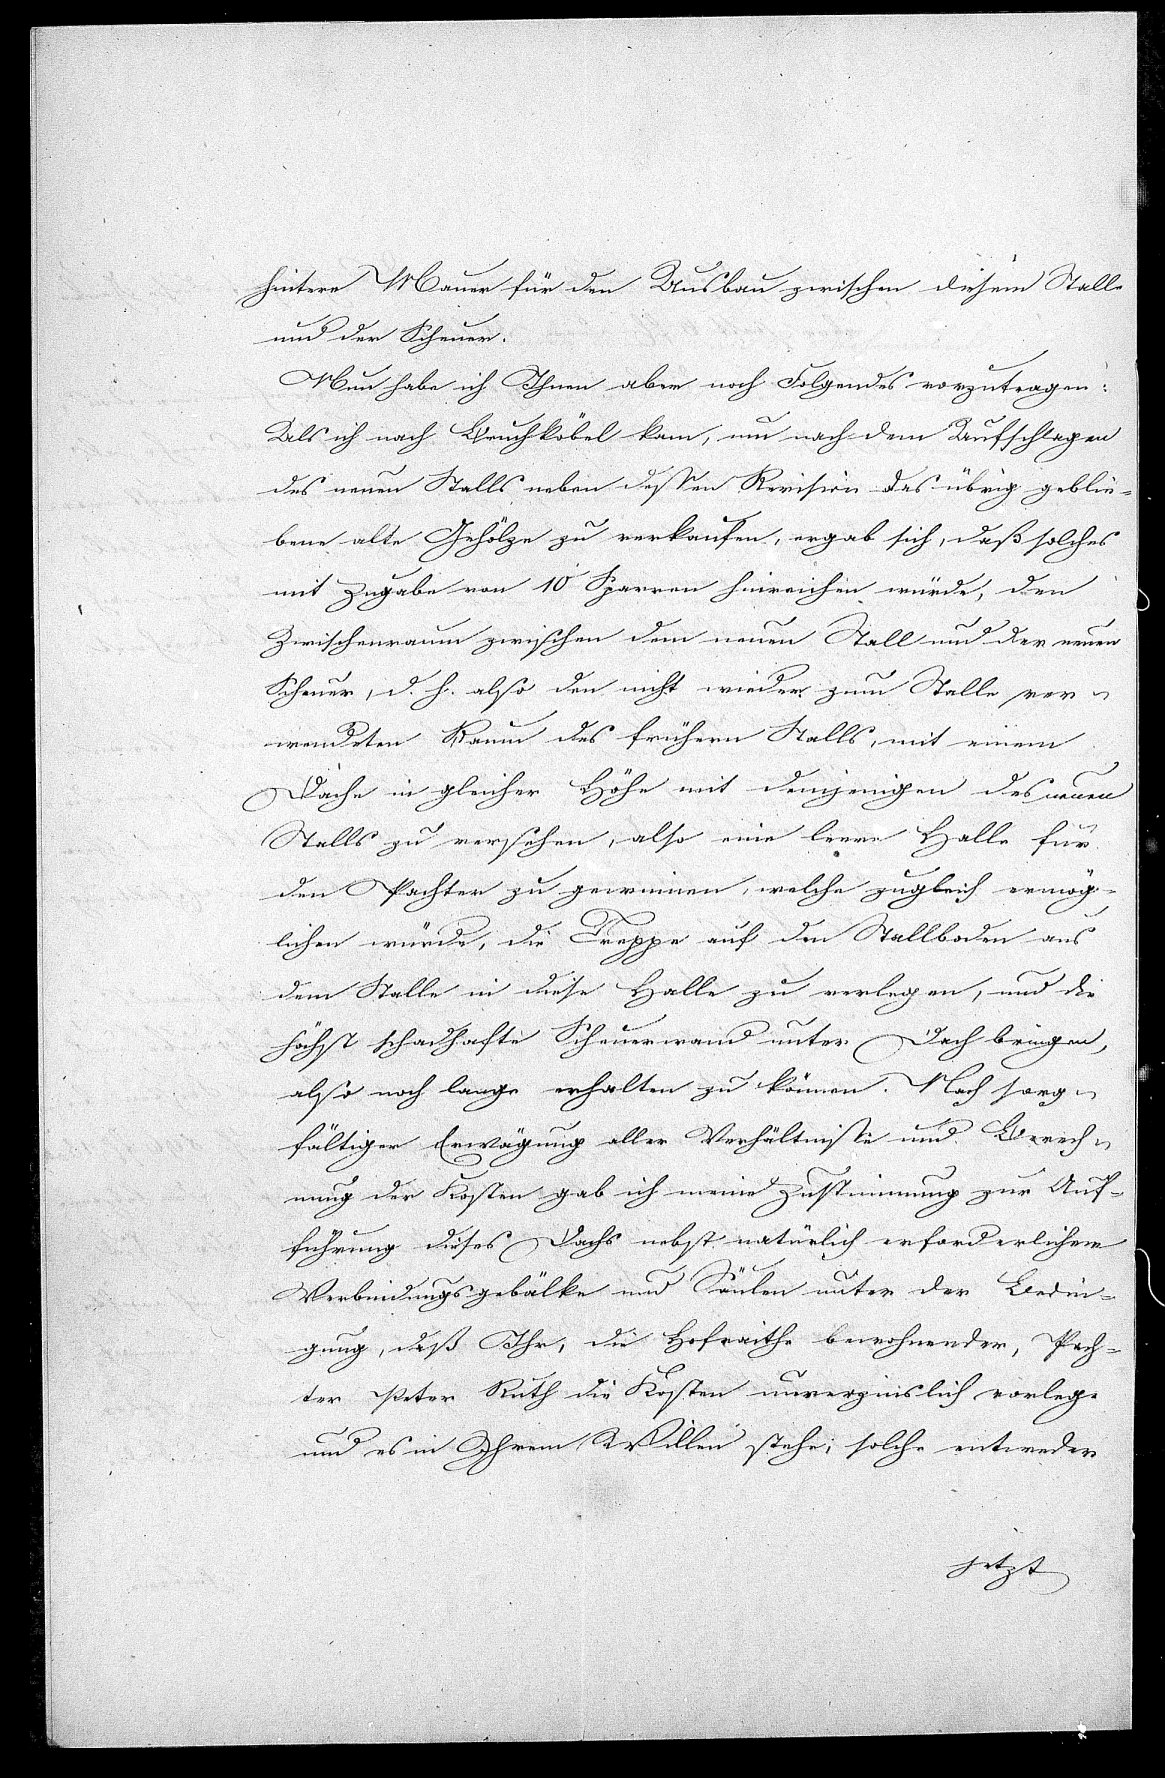 hintere Mauer für den Ausbau zwischen diesem Stalle
und der Scheuer.
Nun habe ich Ihnen aber noch Folgendes vorzutragen:
Als ich nach Bruchköbel kam, um nach dem Aufschlagen
des neuen Stalls neben dessen Revision das übrig geblie-
bene alte Gehölze zu verkaufen, ergab sich, daß solches
mit Zugabe von 10 Sparren hinreichen würde, den
Zwischenraum zwischen dem neuen Stall und der neuen
Scheuer, d. h. also den nicht wieder zum Stalle ver-
wendeten Raum des frühern Stalls, mit einem
Dache in gleicher Höhe mit demjenigen des neuen
Stalls zu versehen, also eine leere Halle für
den Pachter zu gewinnen, welche zugleich ermög-
lichen würde, die Treppe auf den Stallboden aus
dem Stalle in diese Halle zu verlegen, und die
höchst schadhafte Scheuerwand unter Dach bringen,
also noch lange erhalten zu können. Nach sorg-
fältiger Erwägung aller Verhältnisse und Berech-
nung der Kosten gab ich meine Zustimmung zur Auf-
führung dieses Dachs nebst natürlich erforderlichem
Verbindungsgebälke und Säulen unter der Bedin-
gung, daß Ihr, die Hofraithe bewohnender, Pach-
ter Peter Ruth die Kosten unverzinslich vorlege
und es in Ihrem Willen stehe, solche entweder
jetzt